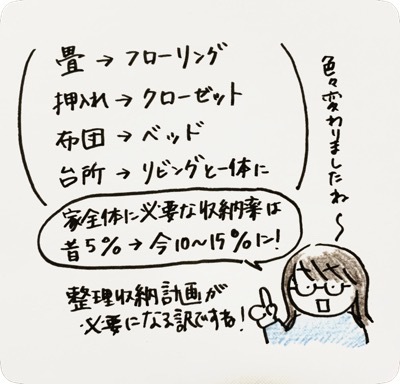 畳→フローリング
押入れ→クローゼット
布団→ベッド
台所→リビングと一体に
色々変わりましたね〜
家全体に必要な収納率は
昔5%→今10〜15%に!
整理収納計画が
必要になる訳ですね!